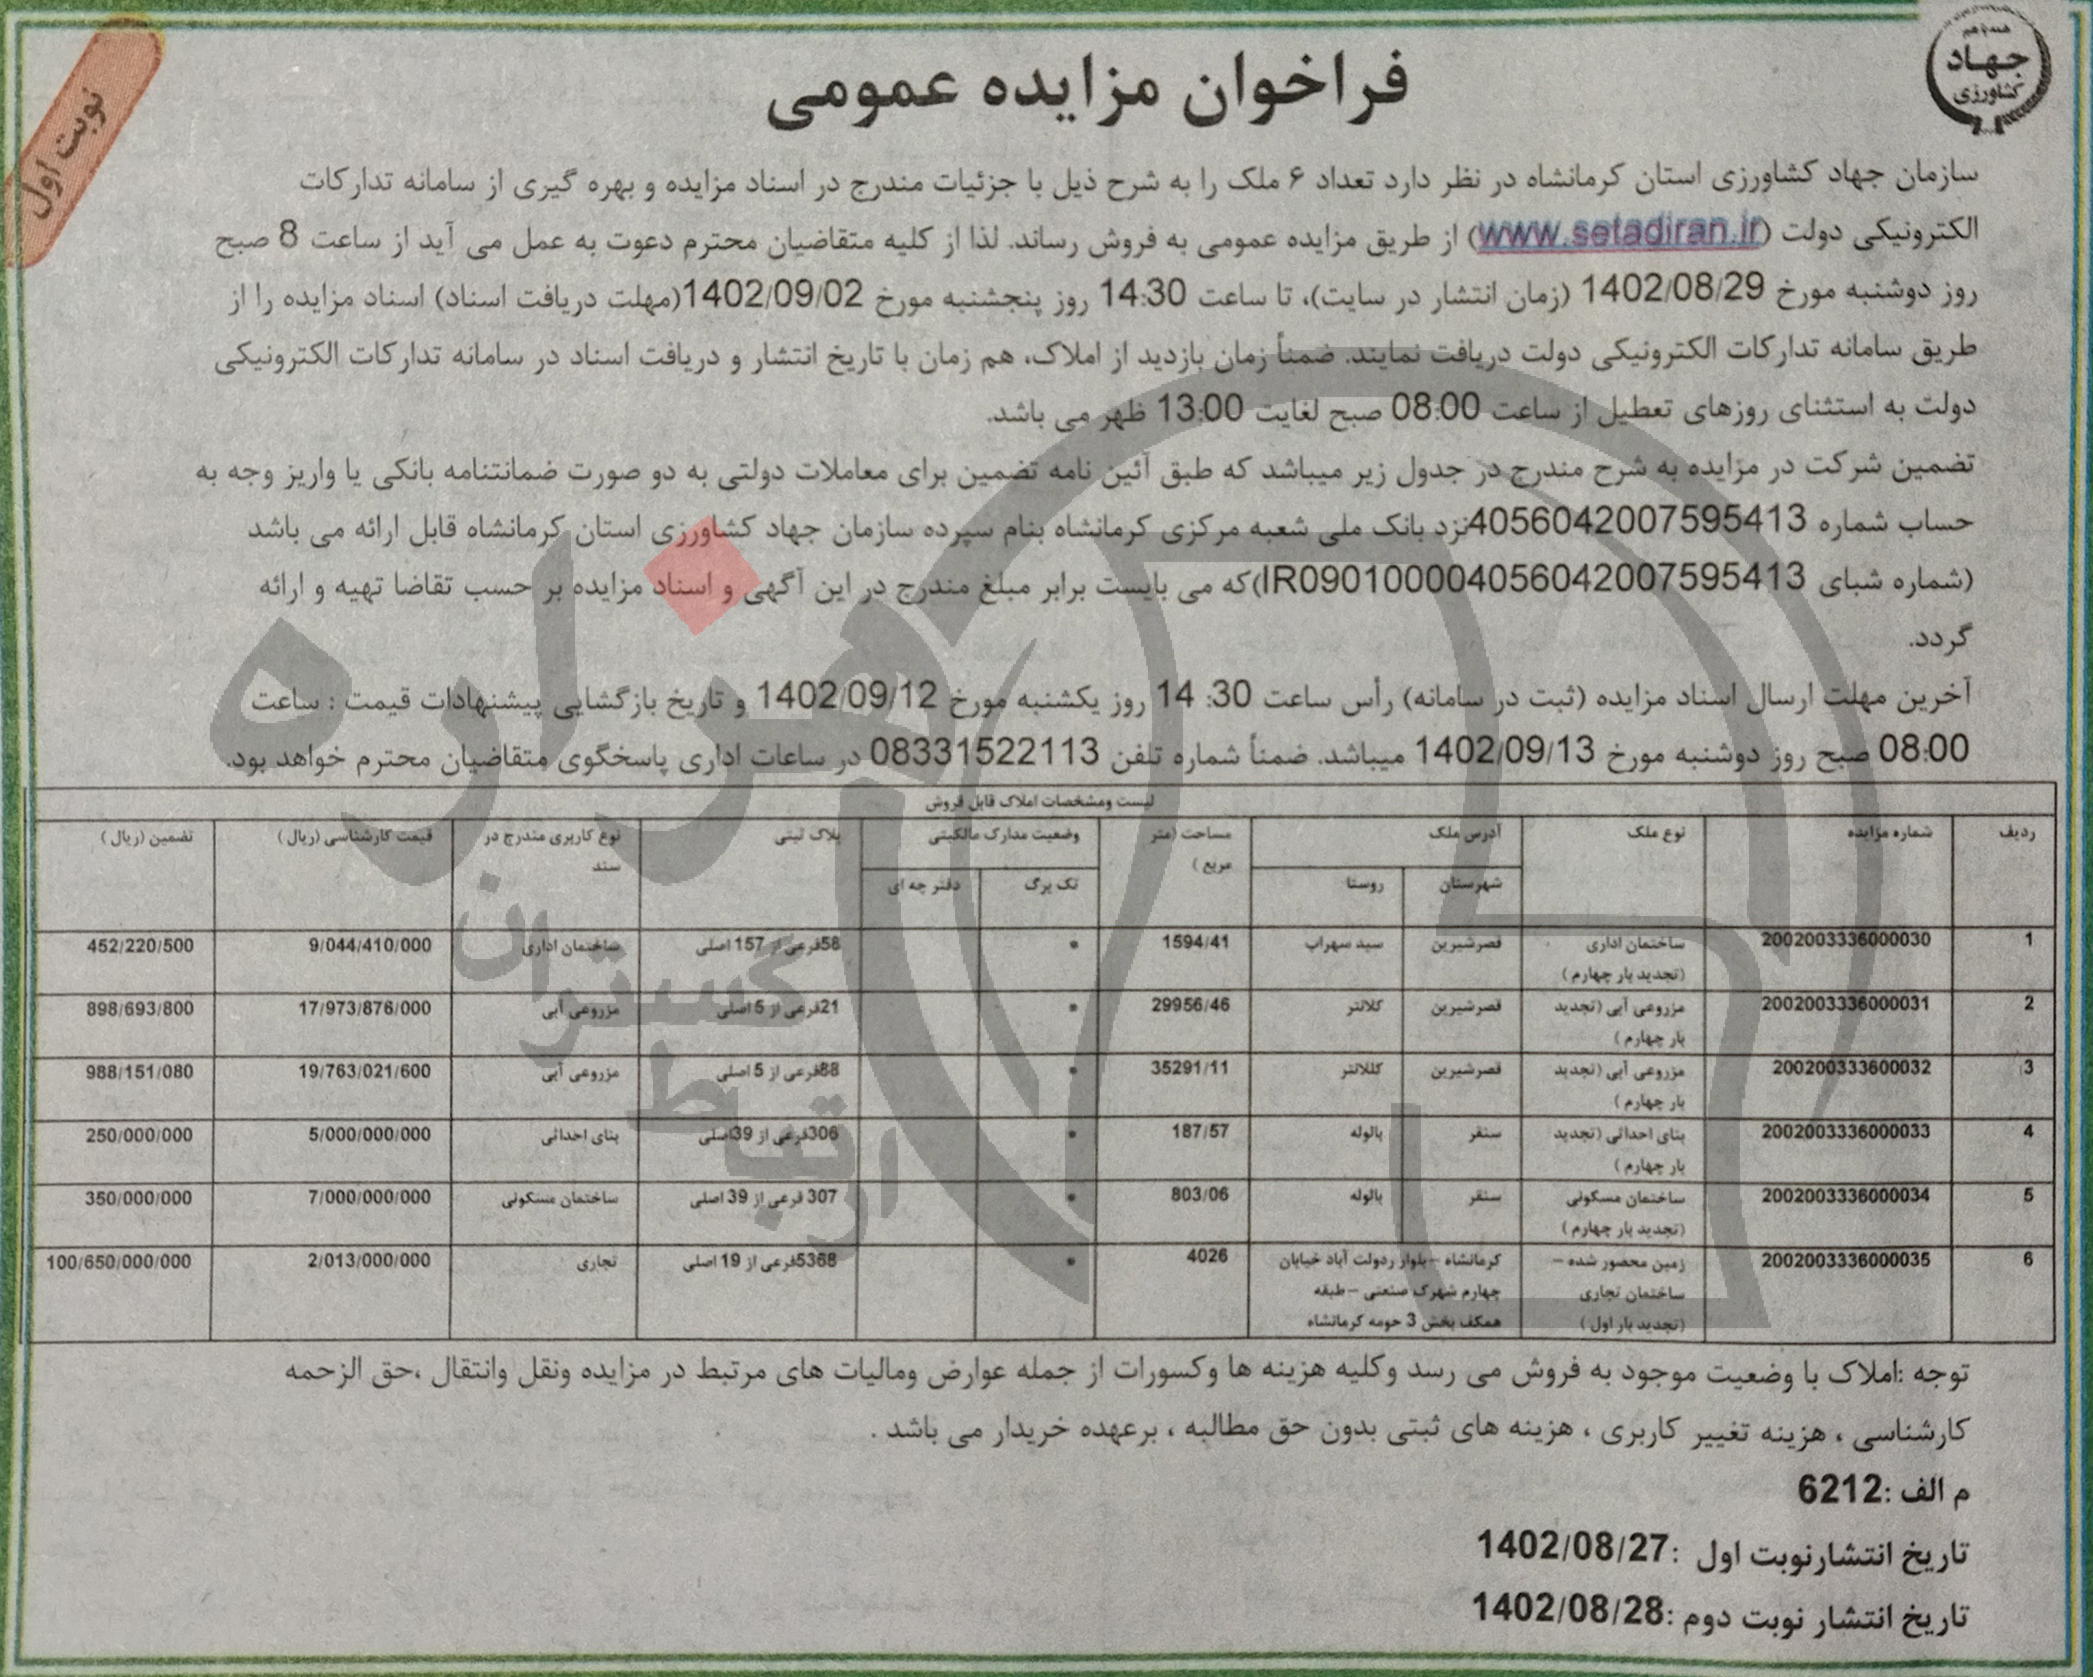 همه با هم
جهاد
کشاورزی
نوبت اول
فراخوان مزایده عمومی
سازمان جهاد کشاورزی استان کرمانشاه در نظر دارد تعداد ۶ ملک را به شرح ذیل با جزئیات مندرج در اسناد مزایده و بهره گیری از سامانه تدارکات
الکترونیکی دولت (www.setadiran.ir) از طریق مزایده عمومی به فروش رساند. لذا از کلیه متقاضیان محترم دعوت به عمل می آید از ساعت 8 صبح
روز دوشنبه مورخ 1402/08/29 (زمان انتشار در سایت)، تا ساعت 14:30 روز پنجشنبه مورخ 1402/09/02(مهلت دریافت اسناد) اسناد مزایده را از
طریق سامانه تدارکات الکترونیکی دولت دریافت نمایند. ضمناً زمان بازدید از املاک، هم زمان با تاریخ انتشار و دریافت اسناد در سامانه تدارکات الکترونیکی
دولت به استثنای روزهای تعطیل از ساعت 08:00 صبح لغایت 13:00 ظهر می باشد.
تضمین شرکت در مزایده به شرح مندرج در جدول زیر میباشد که طبق آئین نامه تضمین برای معاملات دولتی به دو صورت ضمانتنامه بانکی یا واریز وجه به
حساب شماره 4056042007595413نزد بانک ملی شعبه مرکزی کرمانشاه بنام سپرده سازمان جهاد کشاورزی استان کرمانشاه قابل ارائه می باشد
(شماره شبای IR090100004056042007595413)که می بایست برابر مبلغ مندرج در این آگهی و اسناد مزایده بر حسب تقاضا تهیه و ارائه
گردد.
آخرین مهلت ارسال اسناد مزایده (ثبت در سامانه) رأس ساعت 30: 14 روز یکشنبه مورخ 1402/09/12 و تاریخ بازگشایی پیشنهادات قیمت : ساعت
08:00 صبح روز دوشنبه مورخ 1402/09/13 میباشد. ضمناً شماره تلفن 08331522113 در ساعات اداری پاسخگوی متقاضیان محترم خواهد بود.
لیست ومشخصات املاک قابل فروش
ردیف شماره مزایده نوع ملک آدرس ملک مساحت (متر مربع ) وضعیت مدارک مالکیتی پلاک ثبتی نوع کاربری مندرج در سند قیمت کارشناسی (ریال) تضمین (ریال)
شهرستان روستا تک برگ دفتر چه ای
1 2002003336000030 ساختمان اداری (تجدید بار چهارم ) قصرشیرین سید سهراب 1594/41 • 58فرعی از 157 اصلی ساختمان اداری 9/044/410/000 452/220/500
2 2002003336000031 مزروعی آبی (تجدید بار چهارم ) قصرشیرین کلانتر 29956/46 • 21فرعی از 5 اصلی مزروعی آبی 17/973/876/000 898/693/800
3 200200333600032 مزروعی آبی (تجدید بار چهارم ) قصرشیرین کللانتر 35291/11 • 88فرعی از 5 اصلی مزروعی آبی 19/763/021/600 988/151/080
4 2002003336000033 بنای احداثی (تجدید بار چهارم ) سنقر بالوله 187/57 • 306فرعی از 39اصلی بنای احداثی 5/000/000/000 250/000/000
5 2002003336000034 ساختمان مسکونی (تجدید بار چهارم ) سنقر بالوله 803/06 • 307 فرعی از 39 اصلی ساختمان مسکونی 7/000/000/000 350/000/000
6 2002003336000035 زمین محصور شده – ساختمان تجاری (تجدید بار اول ) کرمانشاه – بلوار ردولت آباد خیابان چهارم شهرک صنعتی – طبقه همکف بخش 3 حومه کرمانشاه 4026 • 5368فرعی از 19 اصلی تجاری 2/013/000/000 100/650/000/000
توجه :املاک با وضعیت موجود به فروش می رسد وکلیه هزینه ها وکسورات از جمله عوارض ومالیات های مرتبط در مزایده ونقل وانتقال ،حق الزحمه
کارشناسی ، هزینه تغییر کاربری ، هزینه های ثبتی بدون حق مطالبه ، برعهده خریدار می باشد .
م الف :6212
تاریخ انتشارنوبت اول :1402/08/27
تاریخ انتشار نوبت دوم :1402/08/28
هزاره
ارتباط گستران